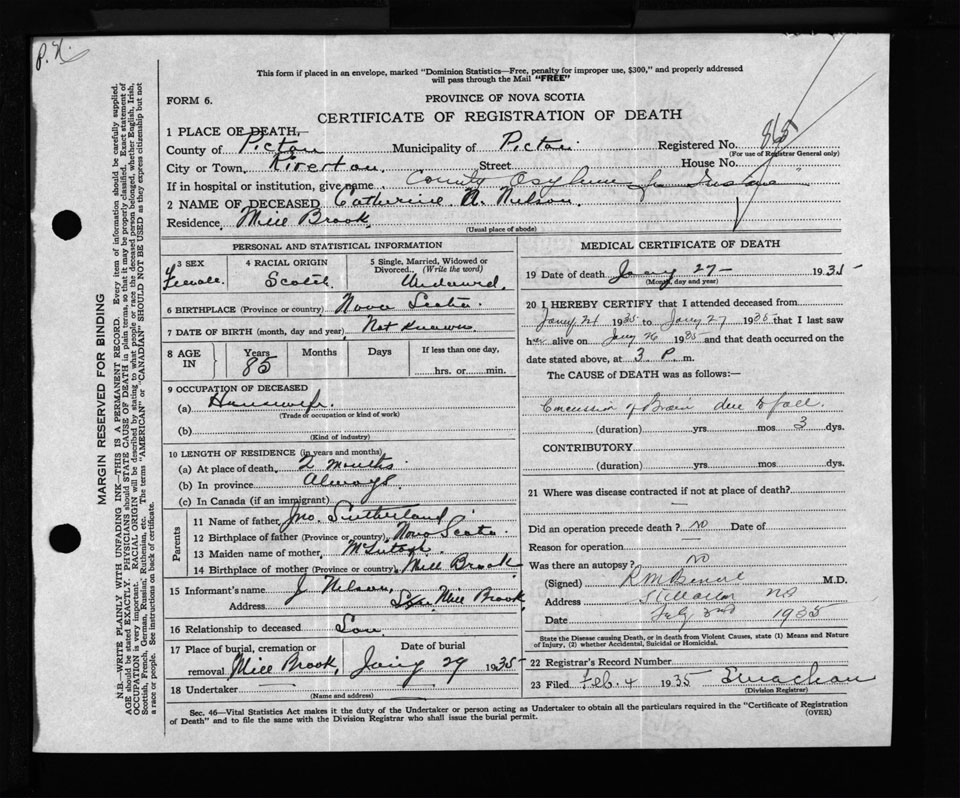 P. N.
This form if placed in an envelope, marked "Dominion Statistics—Free, penalty for improper use, $300," and properly addressed
will pass through the Mail "FREE"
FORM 6.
PROVINCE OF NOVA SCOTIA
CERTIFICATE OF REGISTRATION OF DEATH
1 PLACE OF DEATH,—
County of Pictou Municipality of Pictou Registered No. 865
(For use of Registrar General only)
City or Town, Riverton Street House No.
If in hospital or institution, give name County Asylum for Insane
2 NAME OF DECEASED Catherine N. Nelson.
Residence, Mill Brook
(Usual place of abode)
PERSONAL AND STATISTICAL INFORMATION
3 SEX
Female.
4 RACIAL ORIGIN
Scotch
5 Single, Married, Widowed or
Divorced.. (Write the word)
Widowed.
6 BIRTHPLACE (Province or country) Nova Scotia
7 DATE OF BIRTH (month, day and year) Not Known
8 AGE IN
Years Months Days If less than one day,
85 hrs. or min.
9 OCCUPATION OF DECEASED
(a) Housewife
(Trade or occupation or kind of work)
(b)
(Kind of industry)
10 LENGTH OF RESIDENCE (in years and months)
(a) At place of death 2 months
(b) In province Always
(c) In Canada (if an immigrant)
Parents
11 Name of father Jno. Sutherland
12 Birthplace of father (Province or country) Nova Scotia
13 Maiden name of mother, McIntosh
14 Birthplace of mother (Province or country) Mill Brook
15 Informant's name J. Nelson,
Address Mill Brook
16 Relationship to deceased Son
17 Place of burial, cremation or Date of burial
removal Mill Brook, Jany 29 1935
18 Undertaker
(Name and address)
MEDICAL CERTIFICATE OF DEATH
19 Date of death Jany 27 — 1935
(Month, day and year)
20 I HEREBY CERTIFY that I attended deceased from
Jany 24 1935 to Jany 27 1935 that I last saw
her alive on Jany 26 1935 and that death occurred on the
date stated above, at 3 P. m.
The CAUSE of DEATH was as follows:—
Concussion of Brain due to fall.
(duration) yrs. mos 3 dys.
CONTRIBUTORY.
(duration) yrs. mos. dys.
21 Where was disease contracted if not at place of death?
Did an operation precede death? No Date of
Reason for operation
Was there an autopsy? No
(Signed) M.D.
Address Stellarton NS
Date Feby 2nd 1935
State the Disease causing Death, or in death from Violent Causes, state (1) Means and Nature
of Injury, (2) whether Accidental, Suicidal or Homicidal.
22 Registrar's Record Number
23 Filed Feb. 4 1935
(Division Registrar)
Sec. 46—Vital Statistics Act makes it the duty of the Undertaker or person acting as Undertaker to obtain all the particulars required in the "Certificate of Registration
of Death" and to file the same with the Division Registrar who shall issue the burial permit. (OVER)
MARGIN RESERVED FOR BINDING
N.B.—WRITE PLAINLY WITH UNFADING INK—THIS IS A PERMANENT RECORD. Every item of information should be carefully supplied.
AGE should be stated EXACTLY. PHYSICIANS should STATE CAUSE OF DEATH in plain terms, so that it may be properly classified. Exact statement of
OCCUPATION is very important. RACIAL ORIGIN will be described by stating to what people or race the deceased person belonged, whether English, Irish,
Scottish, French, German, Russian, Ruthenian, etc. The terms "AMERICAN" or "CANADIAN" SHOULD NOT BE USED as they express citizenship but not
a race or people. See instructions on back of certificate.